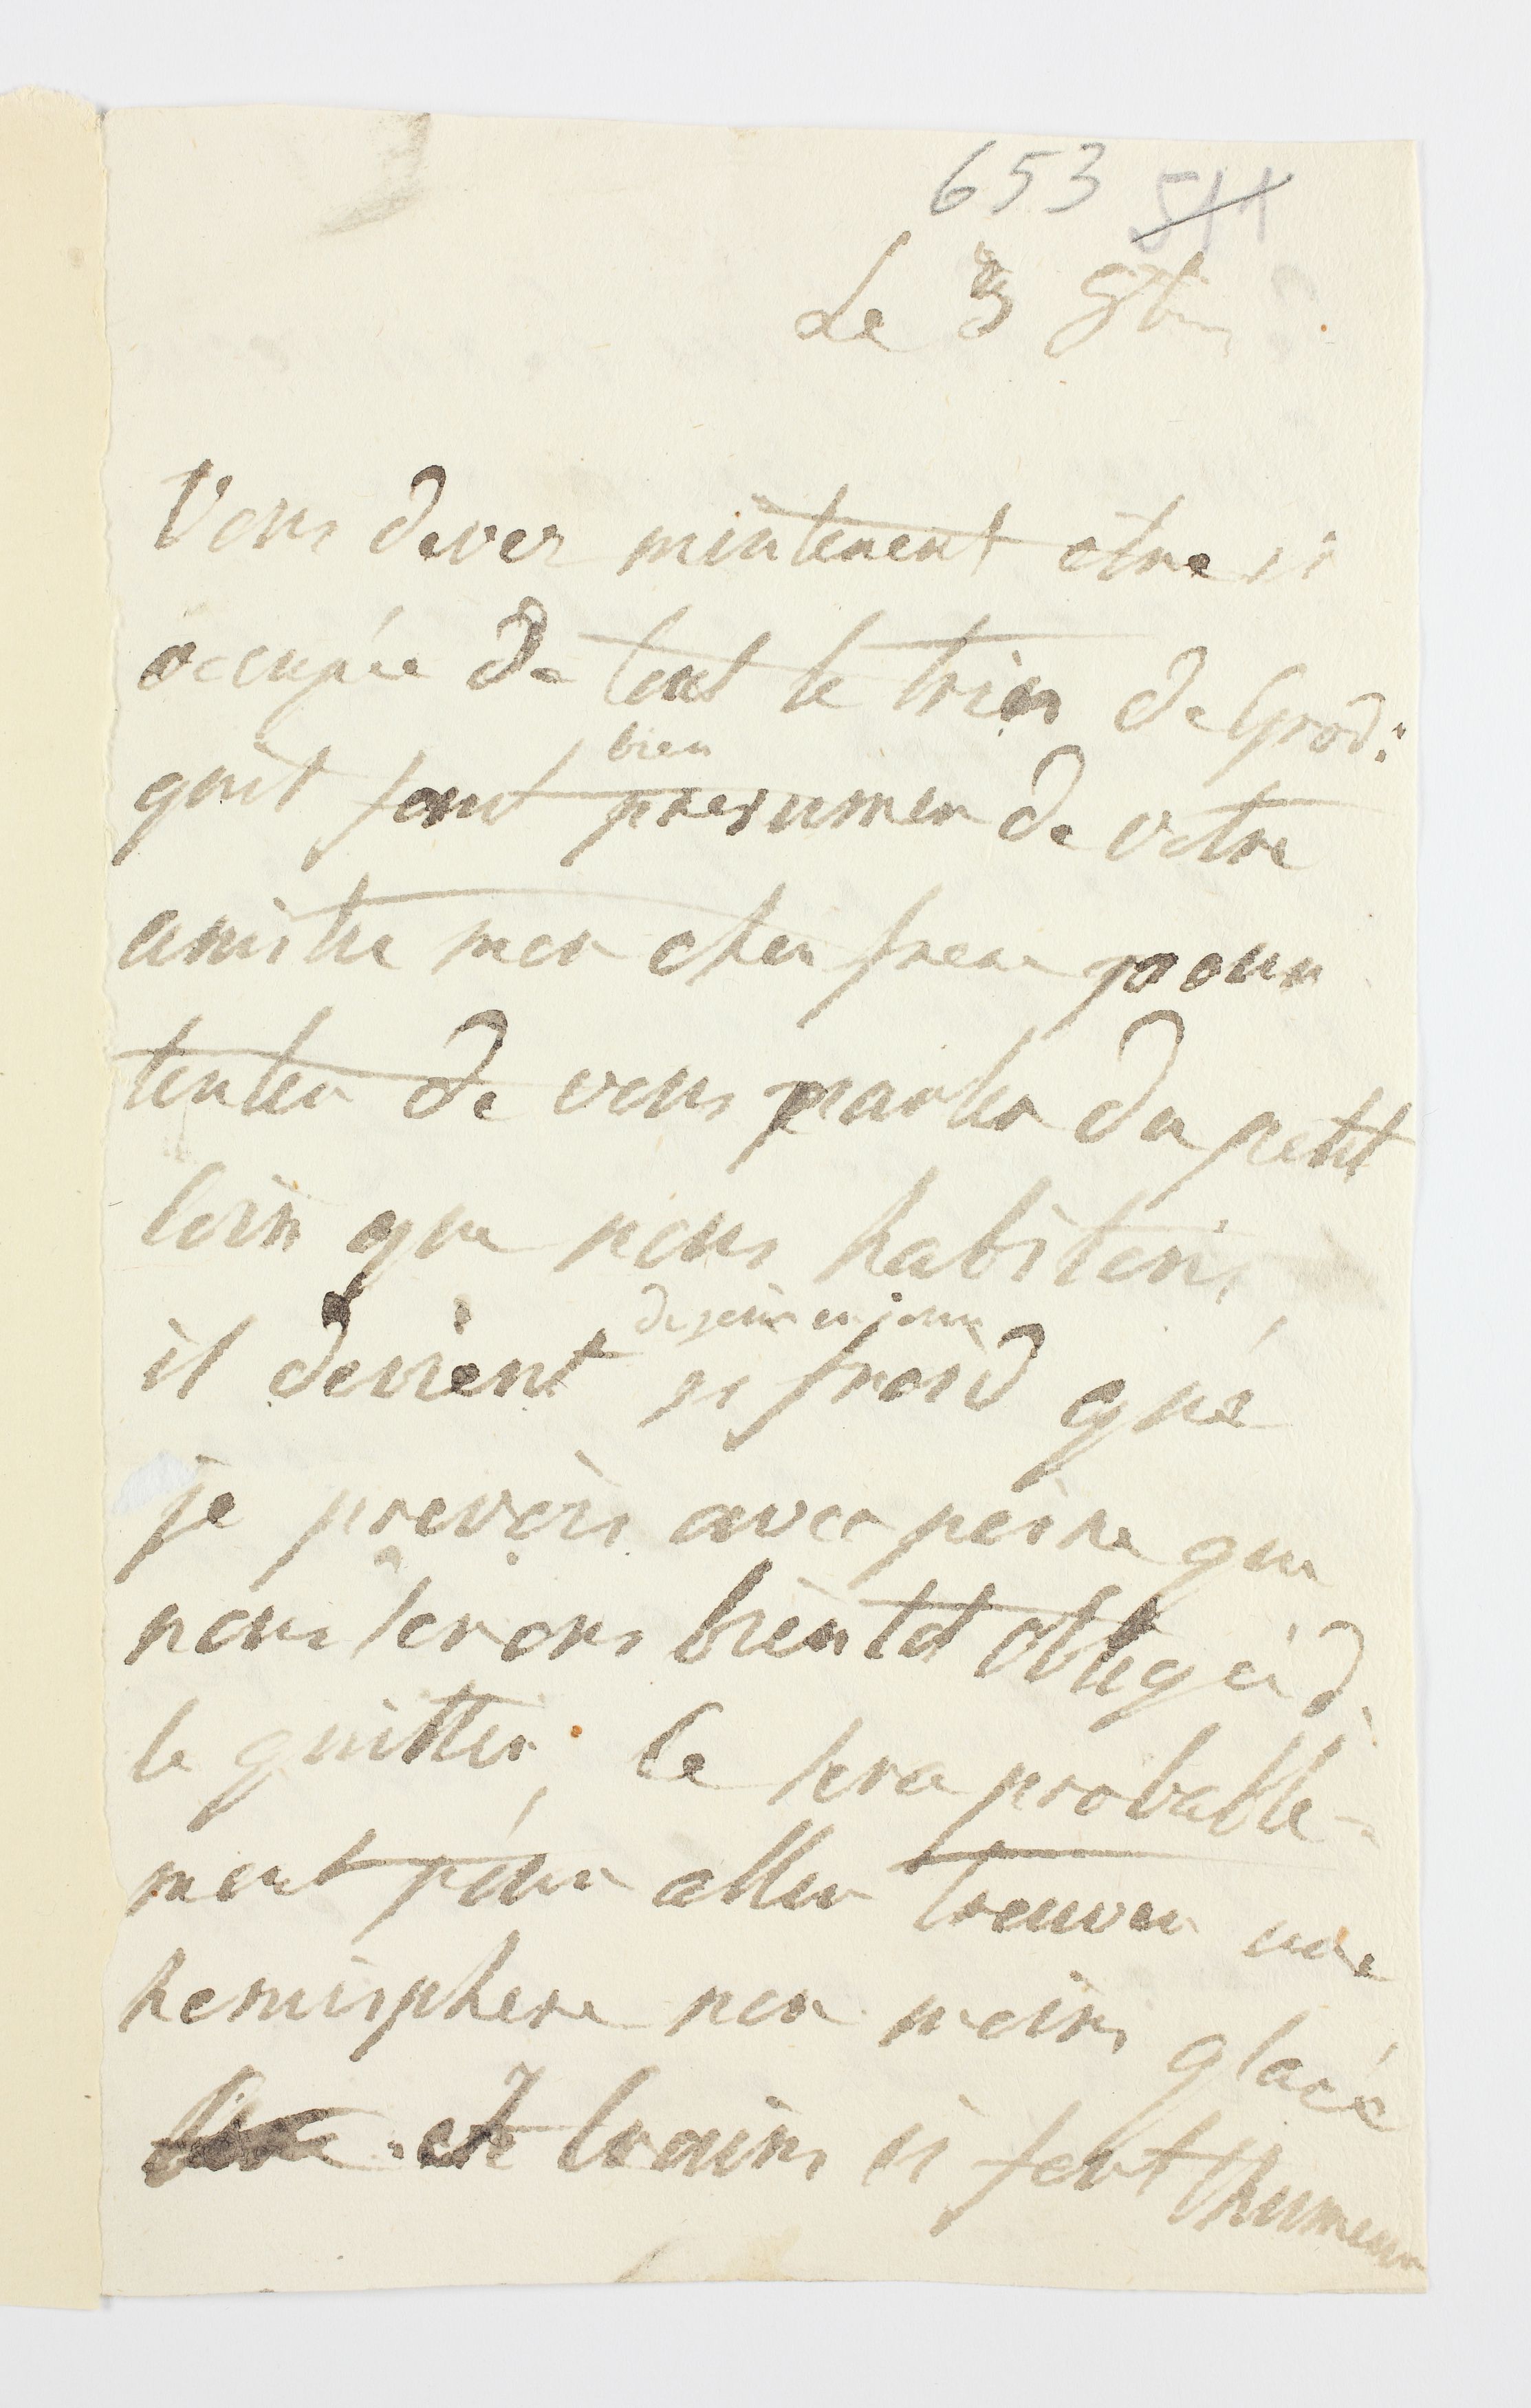 653 511
Le 3 8bre
Vous dever mintenent être si
occupée de tout le bien de Grod:
quil faut bien presumer de votre
amitie mon cher frere pour
tenter de vous parler du petit
loin que nous habitons,
il devient de jour en jour si froid que
je prevois avec peine que
nous serons bientot obligés d
le quitter, Ce sera probable-
ment pour aller trouver une
hemisphere non moins glacé
et crains si fort l'humeur